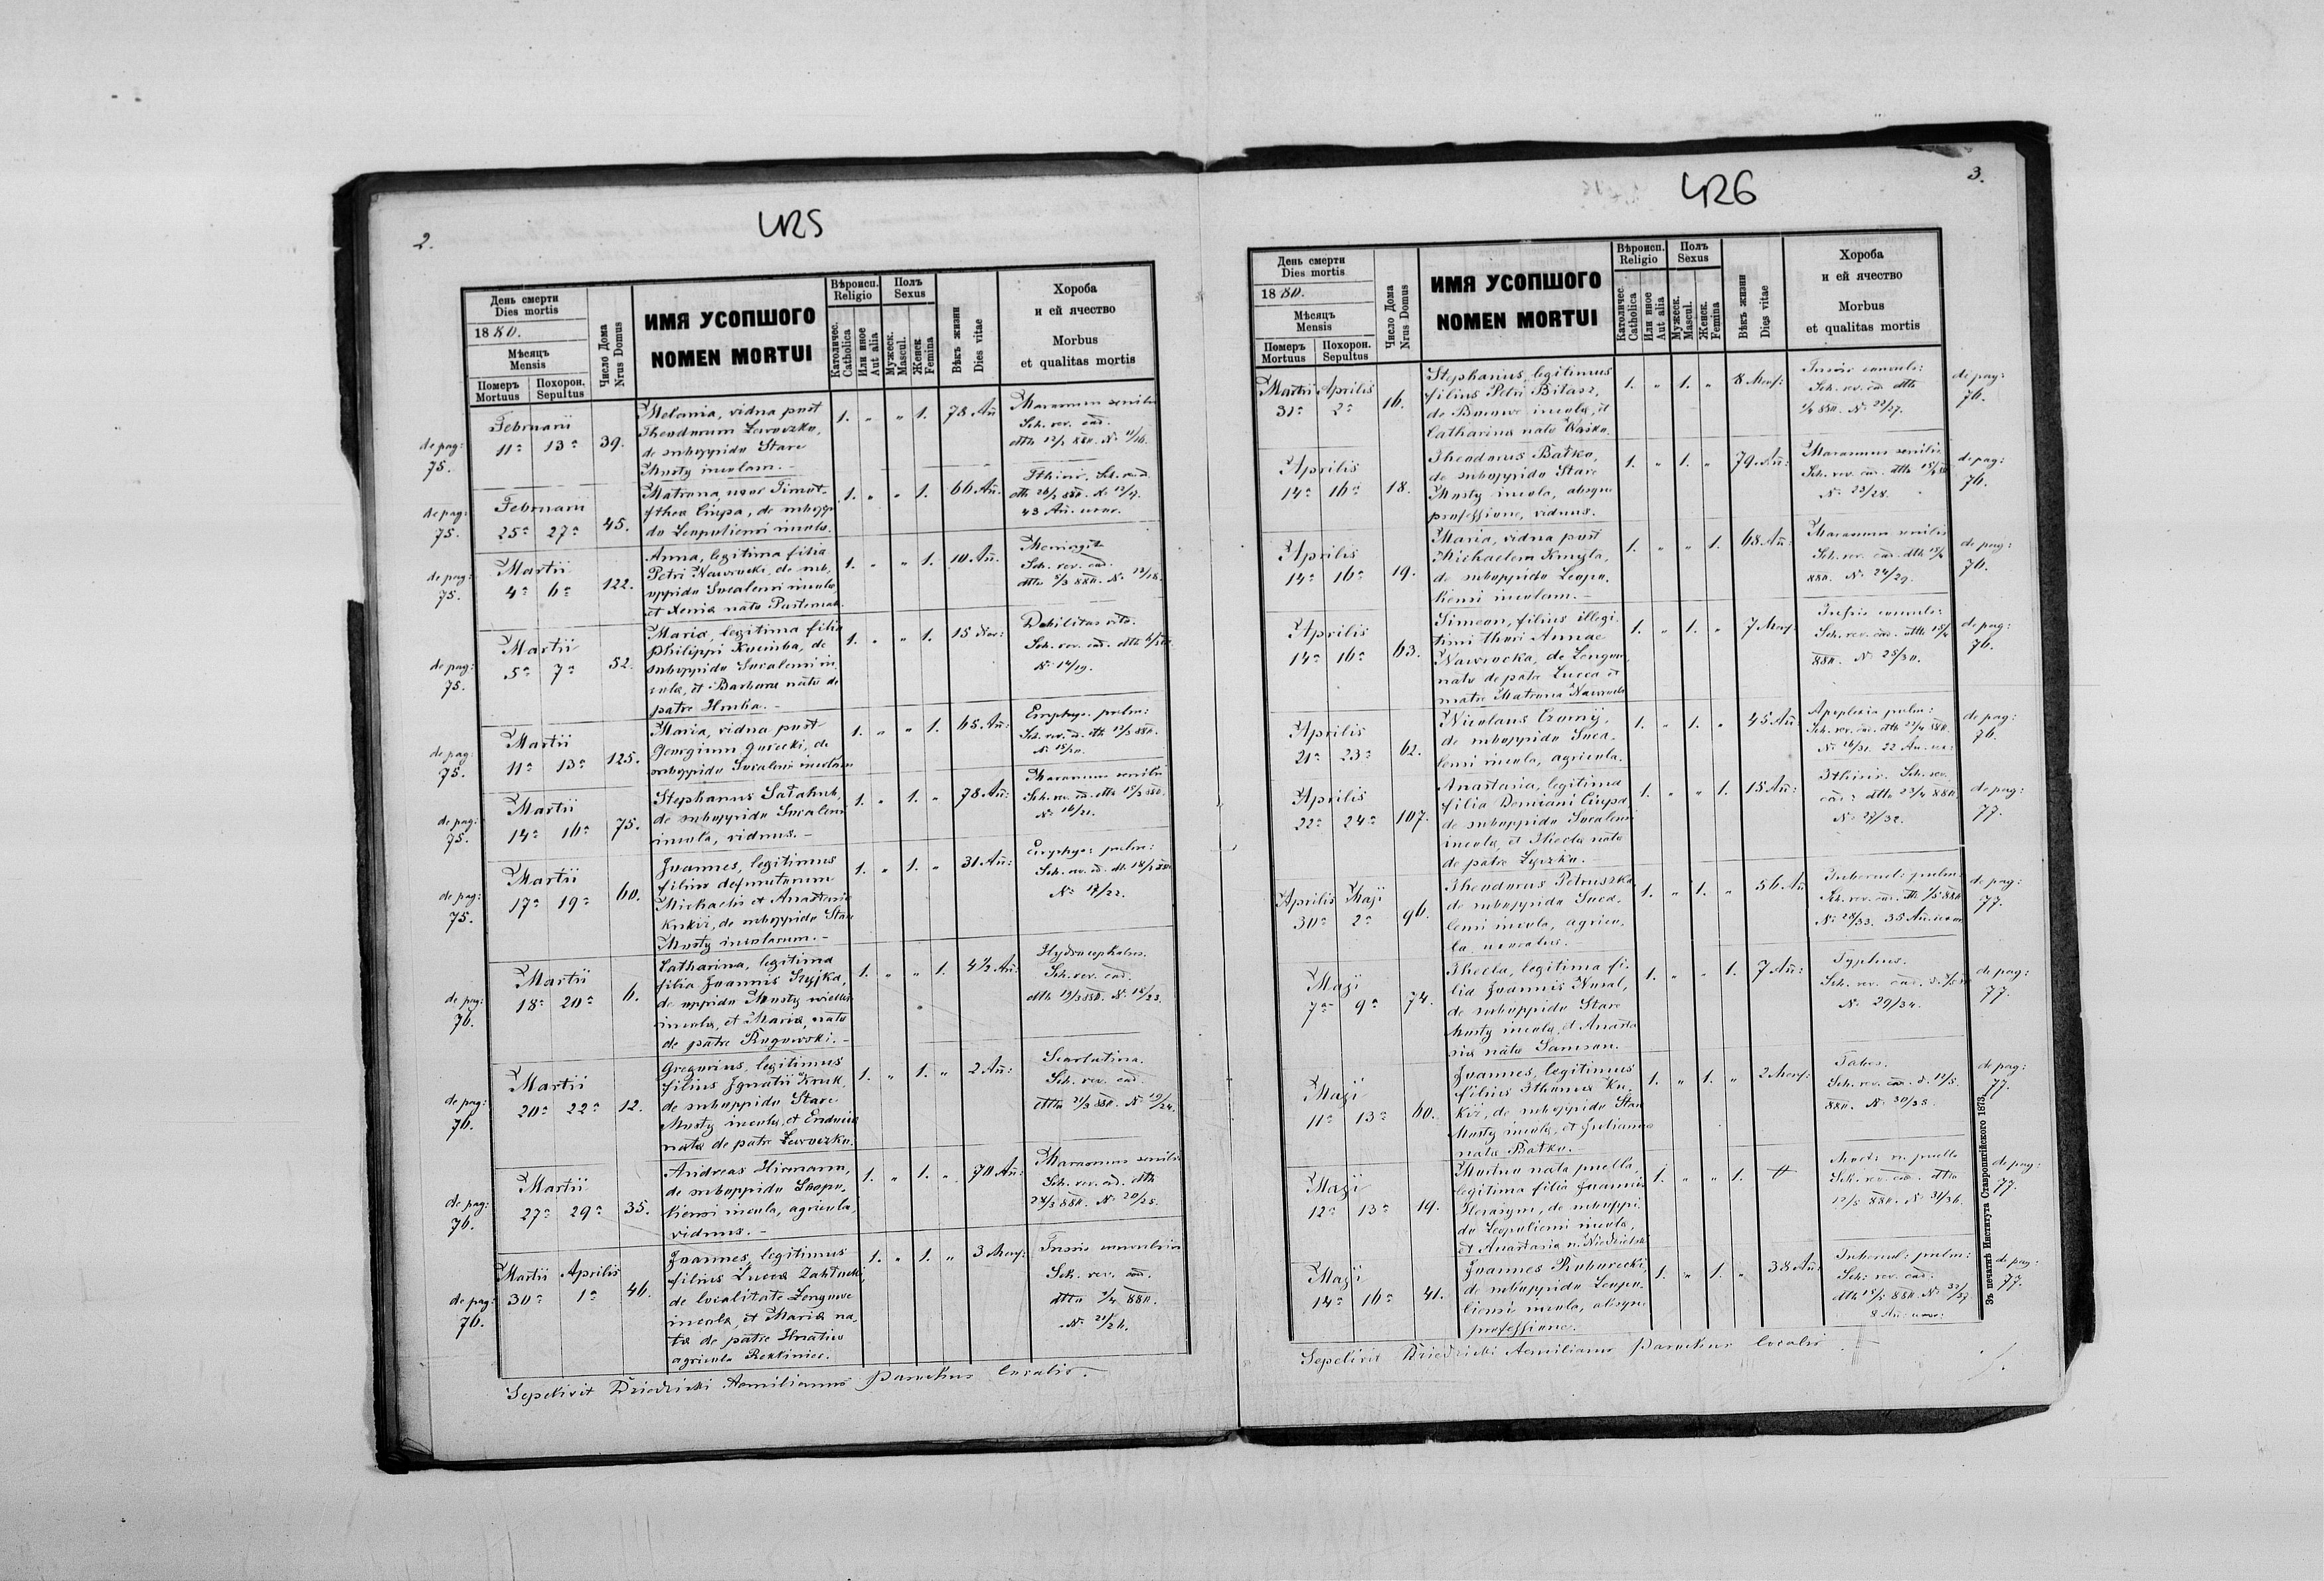 2.
425
День смерти
Dies mortis
1880.
Мѣсяць
Mensis
Померъ
Mortuus
Похорон.
Sepultus
Число Дома
Nrus Domus
ИМЯ УСОПШОГО
NOMEN MORTUI
Вѣроисп.
Religio
Католичес.
Catholica
Или иное
Aut alia
Полъ
Sexus
Мужеск.
Mascul.
Женск.
Femina
Вѣкъ жизни
Dies vitae
Хороба
и ей ячество
Morbus
et qualitas mortis
de pag: 75.
Februarii
11a 13a 39.
Melania, vidua post
Theodorum Lewoczko,
de suboppido Stare
Mosty incolam.-
1. " " 1. 78 Añ
Marasmus senilis
Sch. rev. cad.
dtto 12/2 880. No 11/16.
de pag: 75.
Februarii
25a 27a 45.
Matrona, uxor Timot-
thea Ciupa, de subopp
do Leopoliensi incola.
1. " " 1. 66 Añ.
Pthisis, Sch. cad.
dtto 26/2 880. No 12/17.
43 Añ. uxor.
de pag: 75.
Martii
4a 6a 122.
Anna, legitima filia
Petri Nawrocki, de sub,
oppido Socalensi incola,
et Xenia nata Pasternak.
1. " " 1. 10 Añ.
Meningit
Sch. rev. cad.
dtto 5/3 880. No 13/18.
de pag: 75.
Martii
5a 7a 52.
Maria, legitima filia
Philippi Kuemba, de
suboppido Socalensi in,
cola, et Barbara nata de
patre Hruba.-
1. " " 1. 15 dier:
Debilitas vita.
Sch. rev. cad. dtto 6/3 880.
No 14/19.
de pag: 75.
Martii
11a 13a 125.
Maria, vidua post
Georgium Gorecki, de
suboppido Socalensi incolam
1. " " 1. 65. Añ:
Emphys. pulm:
Sch. rev. cd. dtto 12/3 880.
No 15/20.
de pag: 75.
Martii
14a 16a 75.
Stephanus Sałahub,
de suboppido Socalensi
incola, viduus.-
1. " 1. " 78 Añ:
Marasmus senilis
Sch. rev. cd. dtto 15/3 880.
No 16/21.
de pag: 75.
Martii
17a 19a 60.
Joannes, legitimus
filius defunctorum
Michaelis et Anastasia
Kukiz, de suboppido Stare
Mosty incolarum.-
1. " 1. " 31 Añ:
Emphys: pulm:
Sch. rev. cd. dt. 18/3 880
No 17/22.
de pag: 76.
Martii
18a 20a 6.
Catharina, legitima
filia Joannis Szyjka,
de oppido Mosty wielkie
incola, et Maria, nata
de patre Rogowski.-
1. " " 1. 4½ Añ:
Hydrocephalus.
Sch. rev. cad.
dtto 19/3 880. No 18/23.
de pag: 76.
Martii
20a 22a 12.
Gregorius, legitimus
filius Ignatii Kruk,
de suboppido Stare
Mosty incola, et Eudocia
nata de patre Lewoczko.
1. " 1. " 2 Añ:
Scarlatina.
Sch. rev. cad.
dtto 21/3 880. No 19/24.
de pag: 76.
Martii
27a 29a 35.
Andreas Hirmann,
de suboppido Leopo,
liensi incola, agricola,
viduus.-
1. " 1. " 70 Añ:
Marasmus senilis
Sch. rev. cd. dtto
28/3 880. No 20/25.
de pag: 76.
Martii Aprilis
30a 1a 46.
Joannes, legitimus
filius Lucca Zahłucki
de localitate Zengowe
incola, et Maria na,
ta de patre Hnatiw
agricola Rekliniec.
1. " 1. " 3 Mens:
Tussis convulsiva
Sch. rev. cad.
dtto 1/4 880.
No 21/26.
Sepelivit Dziedzicki Aemilianus Parochus localis.
3.
426
День смерти
Dies mortis
1880.
Мѣсяць
Mensis
Померъ
Mortuus
Похорон.
Sepultus
Число Дома
Nrus Domus
ИМЯ УСОПШОГО
NOMEN MORTUI
Вѣроисп.
Religio
Католичес
Catholica
Или иное
Aut alia
Полъ
Sexus
Мужеск.
Mascul.
Женск.
Femina
Вѣкъ жизни
Dies vitae
Хороба
и ей ячество
Morbus
et qualitas mortis
Martii Aprilis
31a 2a 16.
Stephanus, legitimus
filius Petri Biłasz,
de Borowe incola, et
Catharina nata Waśko.
1. " 1. " 8 Mens:
Tussis convuls:
Sch. rev. cad. dtto
1/4 880. No 22/27.
de pag: 76.
Aprilis
14a 16a 18.
Theodorus Batko,
de suboppido Stare
Mosty incola, absque
professione, viduus.
1. " 1. " 79 Añ:
Marasmus senilis
Sch. rev. cad. dtto 15/4 880
No 23/28.
de pag: 76.
Aprilis
14a 16a 19.
Maria, vidua post
Michaelem Kmyta,
de suboppido Leopo,
liensi incolam.-
1. " " 1. 68 Añ:
Marasmus senilis
Sch. rev. cad. dtto 15/4
880. No 24/29.
de pag: 76.
Aprilis
14a 16a 63.
Simeon, filius illegi,
timi thori Annae
Nawrocka, de Zengowe,
nata de patre Lucca et
matre Matrona Nawrocki
1. " 1. " 7 Mens:
Tussis convuls:
Sch. rev. cad. dtto 15/4
880. No 25/30.
de pag: 76.
Aprilis
21a 23a 62.
Nicolaus Czornij,
de suboppido Soca,
lensi incola, agricola.
1. " 1. " 45 Añ
Apoplexia pulm:
Sch. rev. cad. dtto 22/4 880.
No 26/31. 22 An. ux:
de pag: 76.
Aprilis
22a 24a 107.
Anastasia, legitima
filia Demiani Ciupa,
de suboppido Socalensi
incola, et Thecla nata
de patre Łyczko.
1. " " 1. 15 Añ:
Pthisis. Sch. rev.
cad: dtto 23/4 880.
No 27/32.
de pag: 77.
Aprilis Maji
30a 2a 96.
Theodorus Petruszka
de suboppido Soca,
lensi incola, agrico,
la uxoratus.
1. " 1. " 56 Añ
Tubercul: pulm:
Sch. rev. cad. dtt 1/5 880
No 28/33. 35 Añ. uxor
de pag: 77.
Maji
7a 9a 74.
Thecla, legitima fi-
lia Joannis Kusal,
de suboppido Stare
Mosty incola, et Anasta
sia nata Samson.
1. " " 1. 7 Añ:
Typhus.
Sch. rev. cad. d. 8/5 880
No 29/34.
de pag: 77.
Maji
11a 13a 60.
Joannes, legitimus
filius Thoma Ku,
kiz, de suboppido Stare
Mosty incola, et Juliana
nata Batko.
1. " 1. " 2 Mens:
Tabes.
Sch. rev. cad. d. 12/5.
880. No 30/35.
de pag: 77.
Maji
12a 13a 19.
Mortua nata puella,
legitima filia Joannis
Herasym, de suboppi,
do Leopoliensi incola,
et Anastasia n. Niedzielski
1. " " 1.
Sch. rev. cad. dtto
12/5 880. No 31/36.
de pag: 77.
Maji
14a 16a 41.
Joannes Ruborecki,
de suboppido Leopo,
liensi incola, absque
professione.
1. " 1. " 38 Añ:
Tubercul: pulm:
Sch: rev. cad.
dtto 15/5 880. No 32/37.
8 Añ. uxor:
de pag: 77.
Sepelivit Dziedzicki Aemilianus Parochus localis
Зъ печатнѣ Института Ставропигійского 1873.